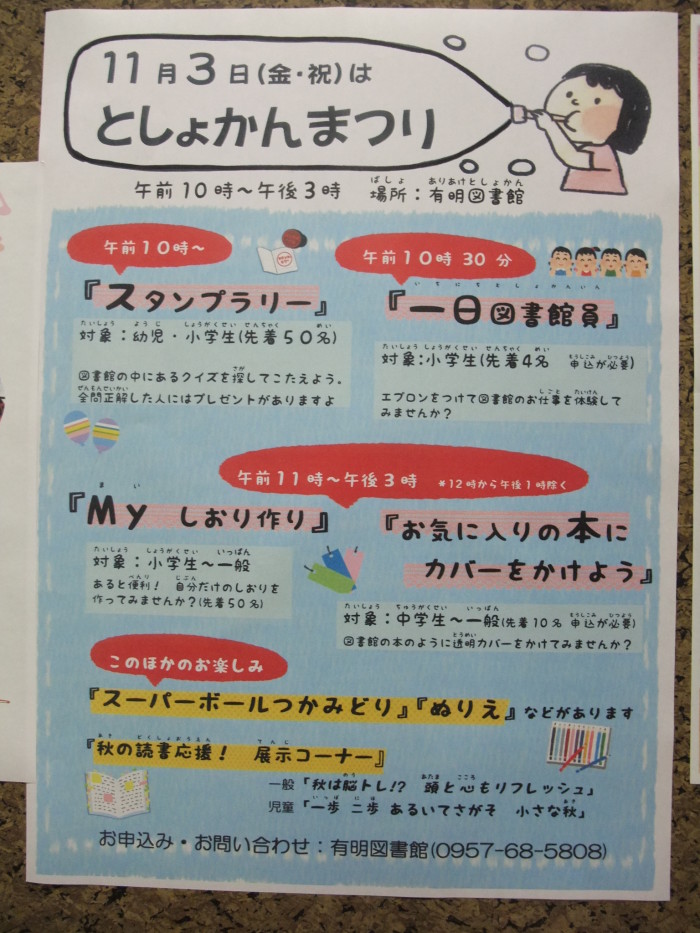 11月3日(金・祝)は
としょかんまつり
午前10時～午後3時　場所：有明図書館
午前10時～
『スタンプラリー』
対象：幼児・小学生(先着50名)
図書館の中にあるクイズを探してこたえよう。
全問正解した人にはプレゼントがありますよ
午前10時30分
『一日図書館員』
対象:小学生(先着4名　申込が必要)
エプロンをつけて図書館のお仕事を体験して
みませんか？
午前11時～午後3時　*12時から午後1時除く
『My しおり作り』
対象：小学生～一般
あると便利！　自分だけのしおりを
作ってみませんか？(先着50名)
『お気に入りの本に
カバーをかけよう』
対象：中学生～一般(先着10名 申込が必要)
図書館の本のように透明カバーをかけてみませんか？
このほかのお楽しみ
『スーパーボールつかみどり』『ぬりえ』などがあります
『秋の読書応援！　展示コーナー』
一般「秋は脳トレ!?　頭と心をリフレッシュ」
児童「一歩 二歩 あるいてさがそ　小さな秋」
お申込み・お問い合わせ：有明図書館(0957-68-5808)